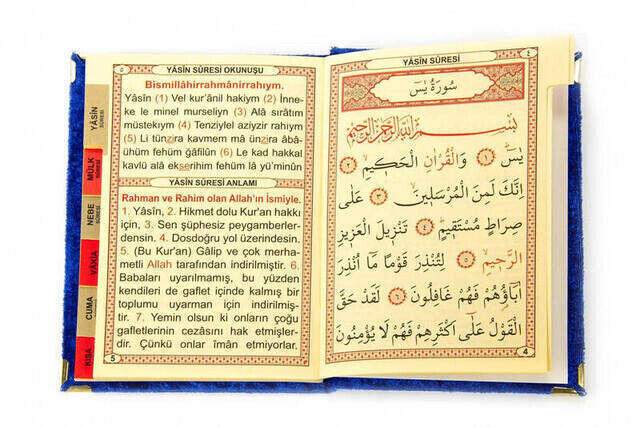 YÂSİN SÛRESİ OKUNUŞU
Bismillâhirrahmânirrahıym.
Yâsîn (1) Vel kur'ânil hakiym (2) İnne-
ke le minel murseliyn (3) Alâ sırâtım
müstekıym (4) Tenziylel aziyzir rahıym
(5) Li tünzira kavmem mâ ünzira âbâ-
ühüm fehüm ğâfilûn (6) Le kad hakkal
kavlü alâ ekserihim fehüm lâ yü'minûn
YÂSİN SÛRESİ ANLAMI
Rahman ve Rahim olan Allah'ın İsmiyle.
1. Yâsîn, 2. Hikmet dolu Kur'an hakkı
için, 3. Sen şüphesiz peygamberler-
densin. 4. Dosdoğru yol üzerindesin.
5. (Bu Kur'an) Gâlip ve çok merha-
metli Allah tarafından indirilmiştir. 6.
Babaları uyarılmamış, bu yüzden
kendileri de gaflet içinde kalmış bir
toplumu uyarman için indirilmiş-
tir. 7. Yemin olsun ki onların çoğu
gafletlerinin cezasını hak etmişler-
dir. Çünkü onlar îmân etmiyorlar.
5
YÂSİN SÛRESİ
MÜLK SÛRESİ
NEBE SÛRESİ
VÂKIA
CUMA
KISA
YÂSİN SÛRESİ
٤
سُورَةُ يٰسٓ
بِسْمِ اللّٰهِ الرَّحْمٰنِ الرَّحِيمِ
يٰسٓ ﴿١﴾ وَالْقُرْاٰنِ الْحَكِيمِ ﴿٢﴾
اِنَّكَ لَمِنَ الْمُرْسَلِينَ ﴿٣﴾ عَلٰى
صِرَاطٍ مُسْتَقِيمٍ ﴿٤﴾ تَنْزِيلَ الْعَزِيزِ
الرَّحِيمِ ﴿٥﴾ لِتُنْذِرَ قَوْمًا مَٓا اُنْذِرَ
اٰبَٓاؤُ۬هُمْ فَهُمْ غَافِلُونَ ﴿٦﴾ لَقَدْ حَقَّ
الْقَوْلُ عَلٰٓى اَكْثَرِهِمْ فَهُمْ لَا يُؤْمِنُونَ
4